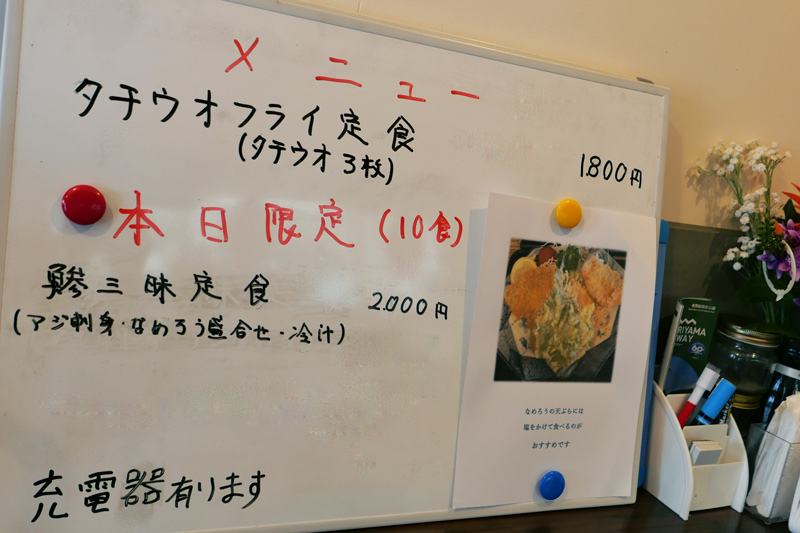 メニュー
タチウオフライ定食
(タチウオ3枚)
1.800円
本日限定(10食)
鯵三昧定食
2.000円
(アジ刺身・なめろう盛合せ・冷汁)
充電器有ります
なめろうの天ぷらには
塩をかけて食べるのが
おすすめです
RIYAMA
WAY